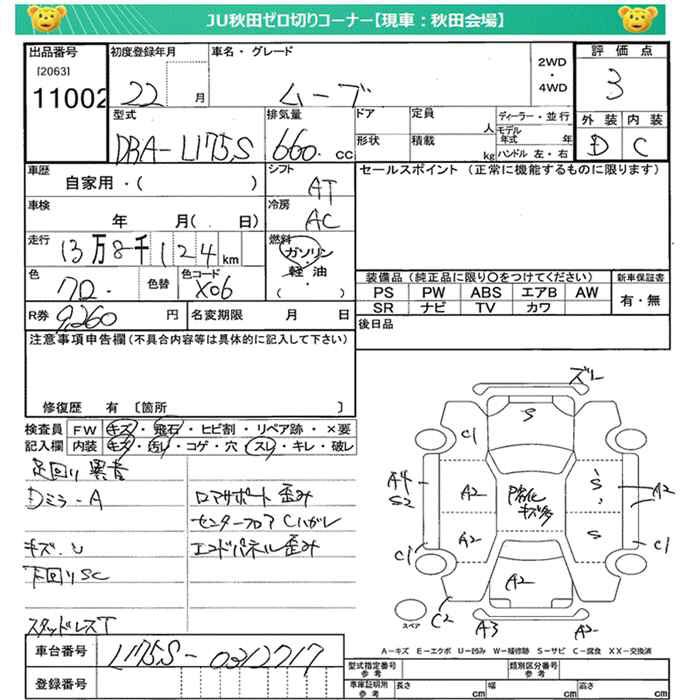 JU秋田ゼロ切りコーナー【現車：秋田会場】
出品番号 [2063] 11002
初度登録年月 22 月
車名・グレード ムーブ
2WD・4WD
評価点 3
外装 D 内装 C
型式 DBA-L175S
排気量 660. cc
ドア 定員 人
形状 積載 kg
ディーラー・並行
モデル年式 年
ハンドル 左・右
車歴 自家用・( )
シフト AT
セールスポイント (正常に機能するものに限ります)
車検 年 月( 日)
冷房 AC
走行 13万8千124km
燃料 ガソリン・軽油・( )
色 クロ. 色替
色コード X06
装備品(純正品に限り○をつけてください)
新車保証書 有・無
PS PW ABS エアB AW
SR ナビ TV カワ
R券 9,260 円
名変期限 月 日
後日品
注意事項申告欄(不具合内容等は具体的に記入して下さい)
修復歴 有 [箇所 ]
検査員記入欄
FW キズ・飛石・ヒビ割・リペア跡・×要
内装 キズ・汚レ・コゲ・穴・スレ・キレ・破レ
足回り異音
Dミラ-A
キズ.U
下回りSC
スタッドレスT
ロアサポート歪み
センターフロアCハガレ
エンドパネル歪み
ズレ
S
C1
A4
S2
A2
A2
C1
C2
A3
内装色
キズ多
A2
S
S
A2
C1
A2
スペア
A-キズ E-エクボ U-凹み W-補修跡 S-サビ C-腐食 XX-交換済
車台番号 L175S-0312717
登録番号
型式指定番号 参考
類別区分番号 参考
車庫証明用 参考 長さ cm 幅 cm 高さ cm